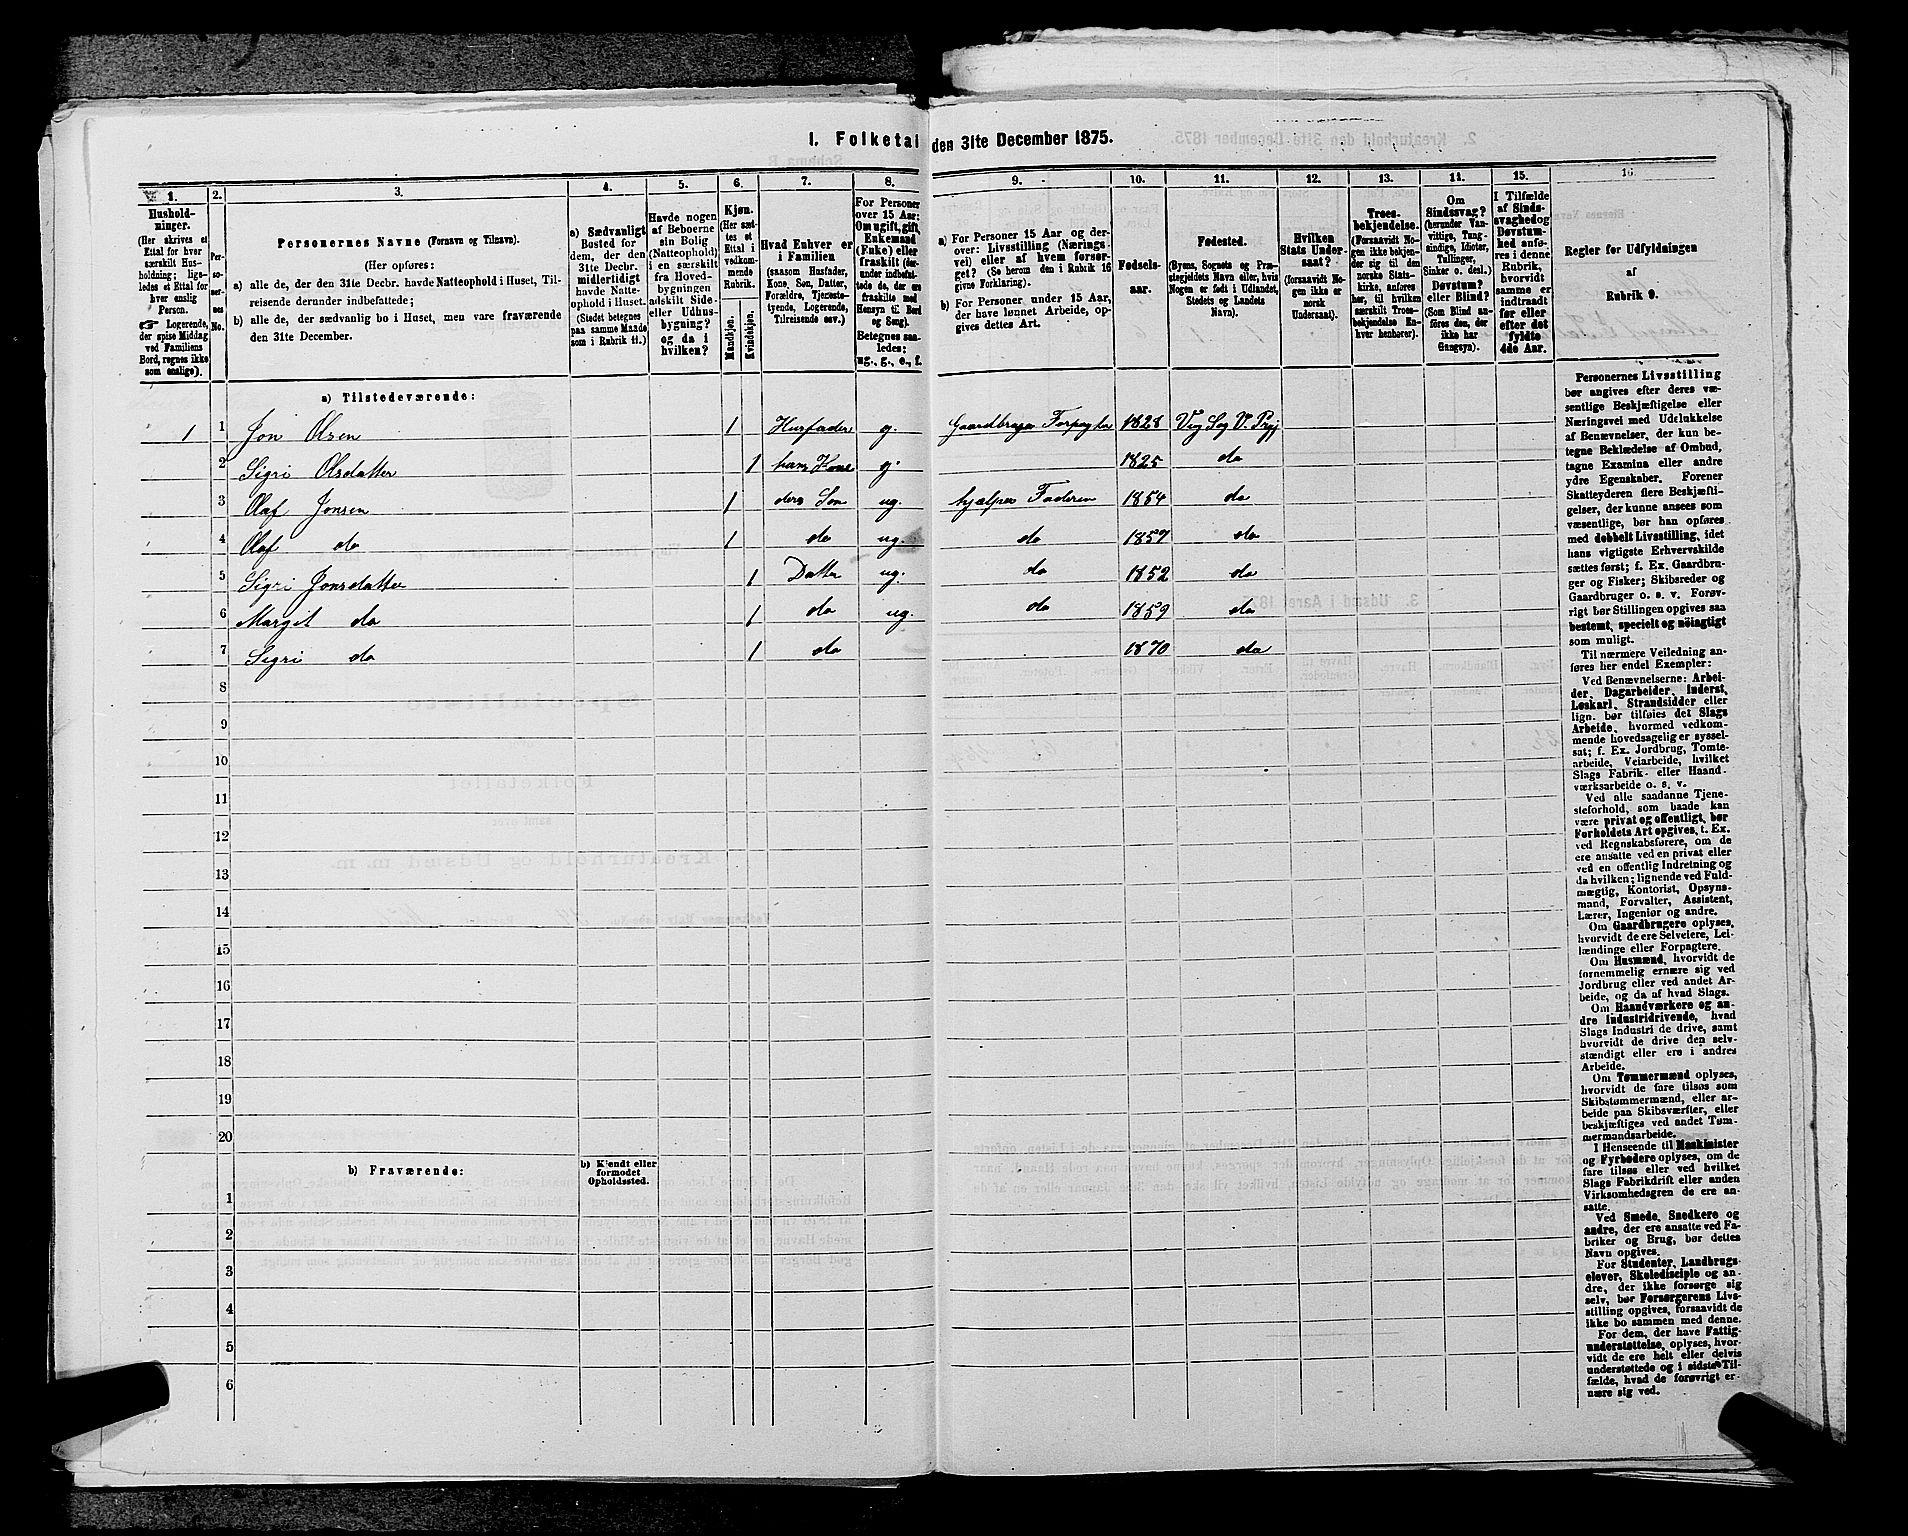 1. Folketal den 31te December 1875.
1. 2. 3. 4. 5. 6. 7. 8. 9. 10. 11. 12. 13. 14. 15. 16.
Hushold-
ninger.
(Her skrives et
Ettal for hver
særskilt Hus-
holdning; lige-
ledes et Ettal for
hver enslig
Person.
☞ Logerende,
der spise Middag
ved Familiens
Bord, regnes ikke
som enslige).
Per-
so-
ner-
nes
No.
Personernes Navne (Fornavn og Tilnavn).
(Her opføres:
a) alle de, der den 31te Decbr. havde Natteophold i Huset, Til-
reisende derunder indbefattede;
b) alle de, der sædvanlig bo i Huset, men vare fraværende
den 31te December.
a) Sædvanligt
Bosted for
dem, der den
31te Decbr.
midlertidigt
havde Natte-
ophold i Huset.
(Stedet betegnes
paa samme Maade
som i Rubrik 11.)
Havde nogen
af Beboerne
sin Bolig
(Natteophold)
i en særskilt
fra Hoved-
bygningen
adskilt Side-
eller Udhus-
bygning?
og da i
hvilken?
Kjøn.
(Her sæt-
tes et
Ettal i
vedkom-
mende
Rubrik.
Mandkjøn.
Kvindekjøn.
Hvad Enhver er
i Familien
(saasom Husfader,
Kone, Søn, Datter,
Forældre, Tjeneste-
tyende, Logerende,
Tilreisende osv.)
For Personer
over 15 Aar:
Om ugift, gift,
Enkemand
(Enke) eller
fraskilt (der-
under indbefat-
tede de, der ere
fraskilte med
Hensyn til Bord
og Seng).
Betegnes saa-
ledes:
ug., g., e., f.
a) For Personer 15 Aar og der-
over: Livsstilling (Nærings-
vei) eller af hvem forsør-
get? (Se herom den i Rubrik 16
givne Forklaring).
b) For Personer under 15 Aar,
der have lønnet Arbeide, op-
gives dettes Art.
Fødsels-
aar.
Fødested.
(Byens, Sognets og Præ-
stegjeldets Navn eller, hvis
Nogen er født i Udlandet,
Stedets og Landets
Navn).
Hvilken
Stats Under-
saat?
(forsaavidt No-
gen ikke er
norsk
Undersaat).
Troes-
bekjendelse.
(Forsaavidt No-
gen ikke bekjen-
der sig til den
norske Stats-
kirke, anføres
her, til hvilken
særskilt Troes-
bekjendelse En-
hver henhører).
Om
Sindssvag?
(herunder Van-
vittige, Tung-
sindige, Idioter,
Tullinger,
Sinker o. desl.)
Døvstum?
eller Blind?
(Som Blind an-
føres den, der
ikke har
Gangsyn).
I Tilfælde
af Sinds-
svaghed og
Døvstum-
hed anfø-
res i denne
Rubrik,
hvorvidt
samme er
indtraadt
før eller
efter det
fyldte
4de Aar.
Regler for Udfyldningen
af
Rubrik 9.
a) Tilstedeværende:
1 1 Jon Olsen 1 Husfader g. Gaardbruger Forpagter 1828 Vig Sog V. Prgj
2 Sigri Olsdatter 1 hans Kone g. 1825 do
3 Olaf Jonsen 1 ders Søn ug. hjælper Faderen 1854 do
4 Olaf do 1 do ug. do 1857 do
5 Sigri Jonsdatter 1 Datter ug. do 1852 do
6 Margit do 1 do ug. do 1859 do
7 Sigri do 1 do 1870 do
8
9
10
11
12
13
14
15
16
17
18
19
20
b) Fraværende:
b) Kjendt eller
formodet
Opholdssted.
1
2
3
4
5
6
Personernes Livsstilling
bør angives efter deres væ-
sentlige Beskjæftigelse eller
Næringsvei med Udelukkelse
af Benævnelser, der kun be-
tegne Beklædelse af Ombud,
tagne Examina eller andre
ydre Egenskaber. Forener
Skatteyderen flere Beskjæfti-
gelser, der kunne ansees som
væsentlige, bør han opføres
med dobbelt Livsstilling, idet
hans vigtigste Erhvervskilde
sættes først; f. Ex. Gaardbru-
ger og Fisker; Skibsreder og
Gaardbruger o. s. v. Forøv-
rigt bør Stillingen opgives saa
bestemt, specielt og nøiagtigt
som muligt.
Til nærmere Veiledning an-
føres her endel Exempler:
Ved Benævnelserne: Arbei-
der, Dagarbeider, Inderst,
Løskarl, Strandsidder eller
lign. bør tilføies det Slags
Arbeide, hvormed vedkom-
mende hovedsagelig er syssel-
sat; f. Ex. Jordbrug, Tomte-
arbeide, Veiarbeide, hvilket
Slags Fabrik- eller Haand-
værksarbeide o. s. v.
Ved alle saadanne Tjene-
steforhold, som baade kan
være privat og offentligt, bør
Forholdets Art opgives, t. Ex.
ved Regnskabsførere, om de
ere ansatte ved en privat eller
ved en offentlig Indretning og
da hvilken; lignende ved Fuld-
mægtig, Kontorist, Opsyns-
mand, Forvalter, Assistent,
Lærer, Ingeniør og andre.
Om Gaardbrugere oplyses,
hvorvidt de ere Selveiere, Lei-
lændinge eller Forpagtere.
Om Husmænd, hvorvidt de
fornemmelig ernære sig ved
Jordbrug eller ved andet Ar-
beide, og da af hvad Slags.
Om Haandværkere og an-
dre Industridrivende, hvad
Slags Industri de drive, samt
hvorvidt de drive den selv-
stændigt eller ere i andres
Arbeide.
Om Tømmermænd oplyses,
hvorvidt de fare tilsøs som
Skibstømmermænd, eller ar-
beide paa Skibsværfter, eller
beskjæftiges ved andet Tøm-
mermandsarbeide.
I Henseende til Maskinister
og Fyrbødere oplyses, om de
fare tilsøs eller ved hvilket
Slags Fabrikdrift eller anden
Virksomhedsgren de ere an-
satte.
Ved Smede, Snedkere og
andre, der ere ansatte ved Fa-
briker og Brug, bør dettes
Navn opgives.
For Studenter, Landbrugs-
elever, Skoledisciple og an-
dre, der ikke forsørge sig
selv, bør Forsørgerens Livs-
stilling opgives, forsaavidt de
ikke bo sammen med denne.
For dem, der have Fattig-
understøttelse, oplyses, hvor-
vidt de ere helt eller delvis
understøttede og i sidste Til-
fælde, hvad de forøvrigt er-
nære sig ved.